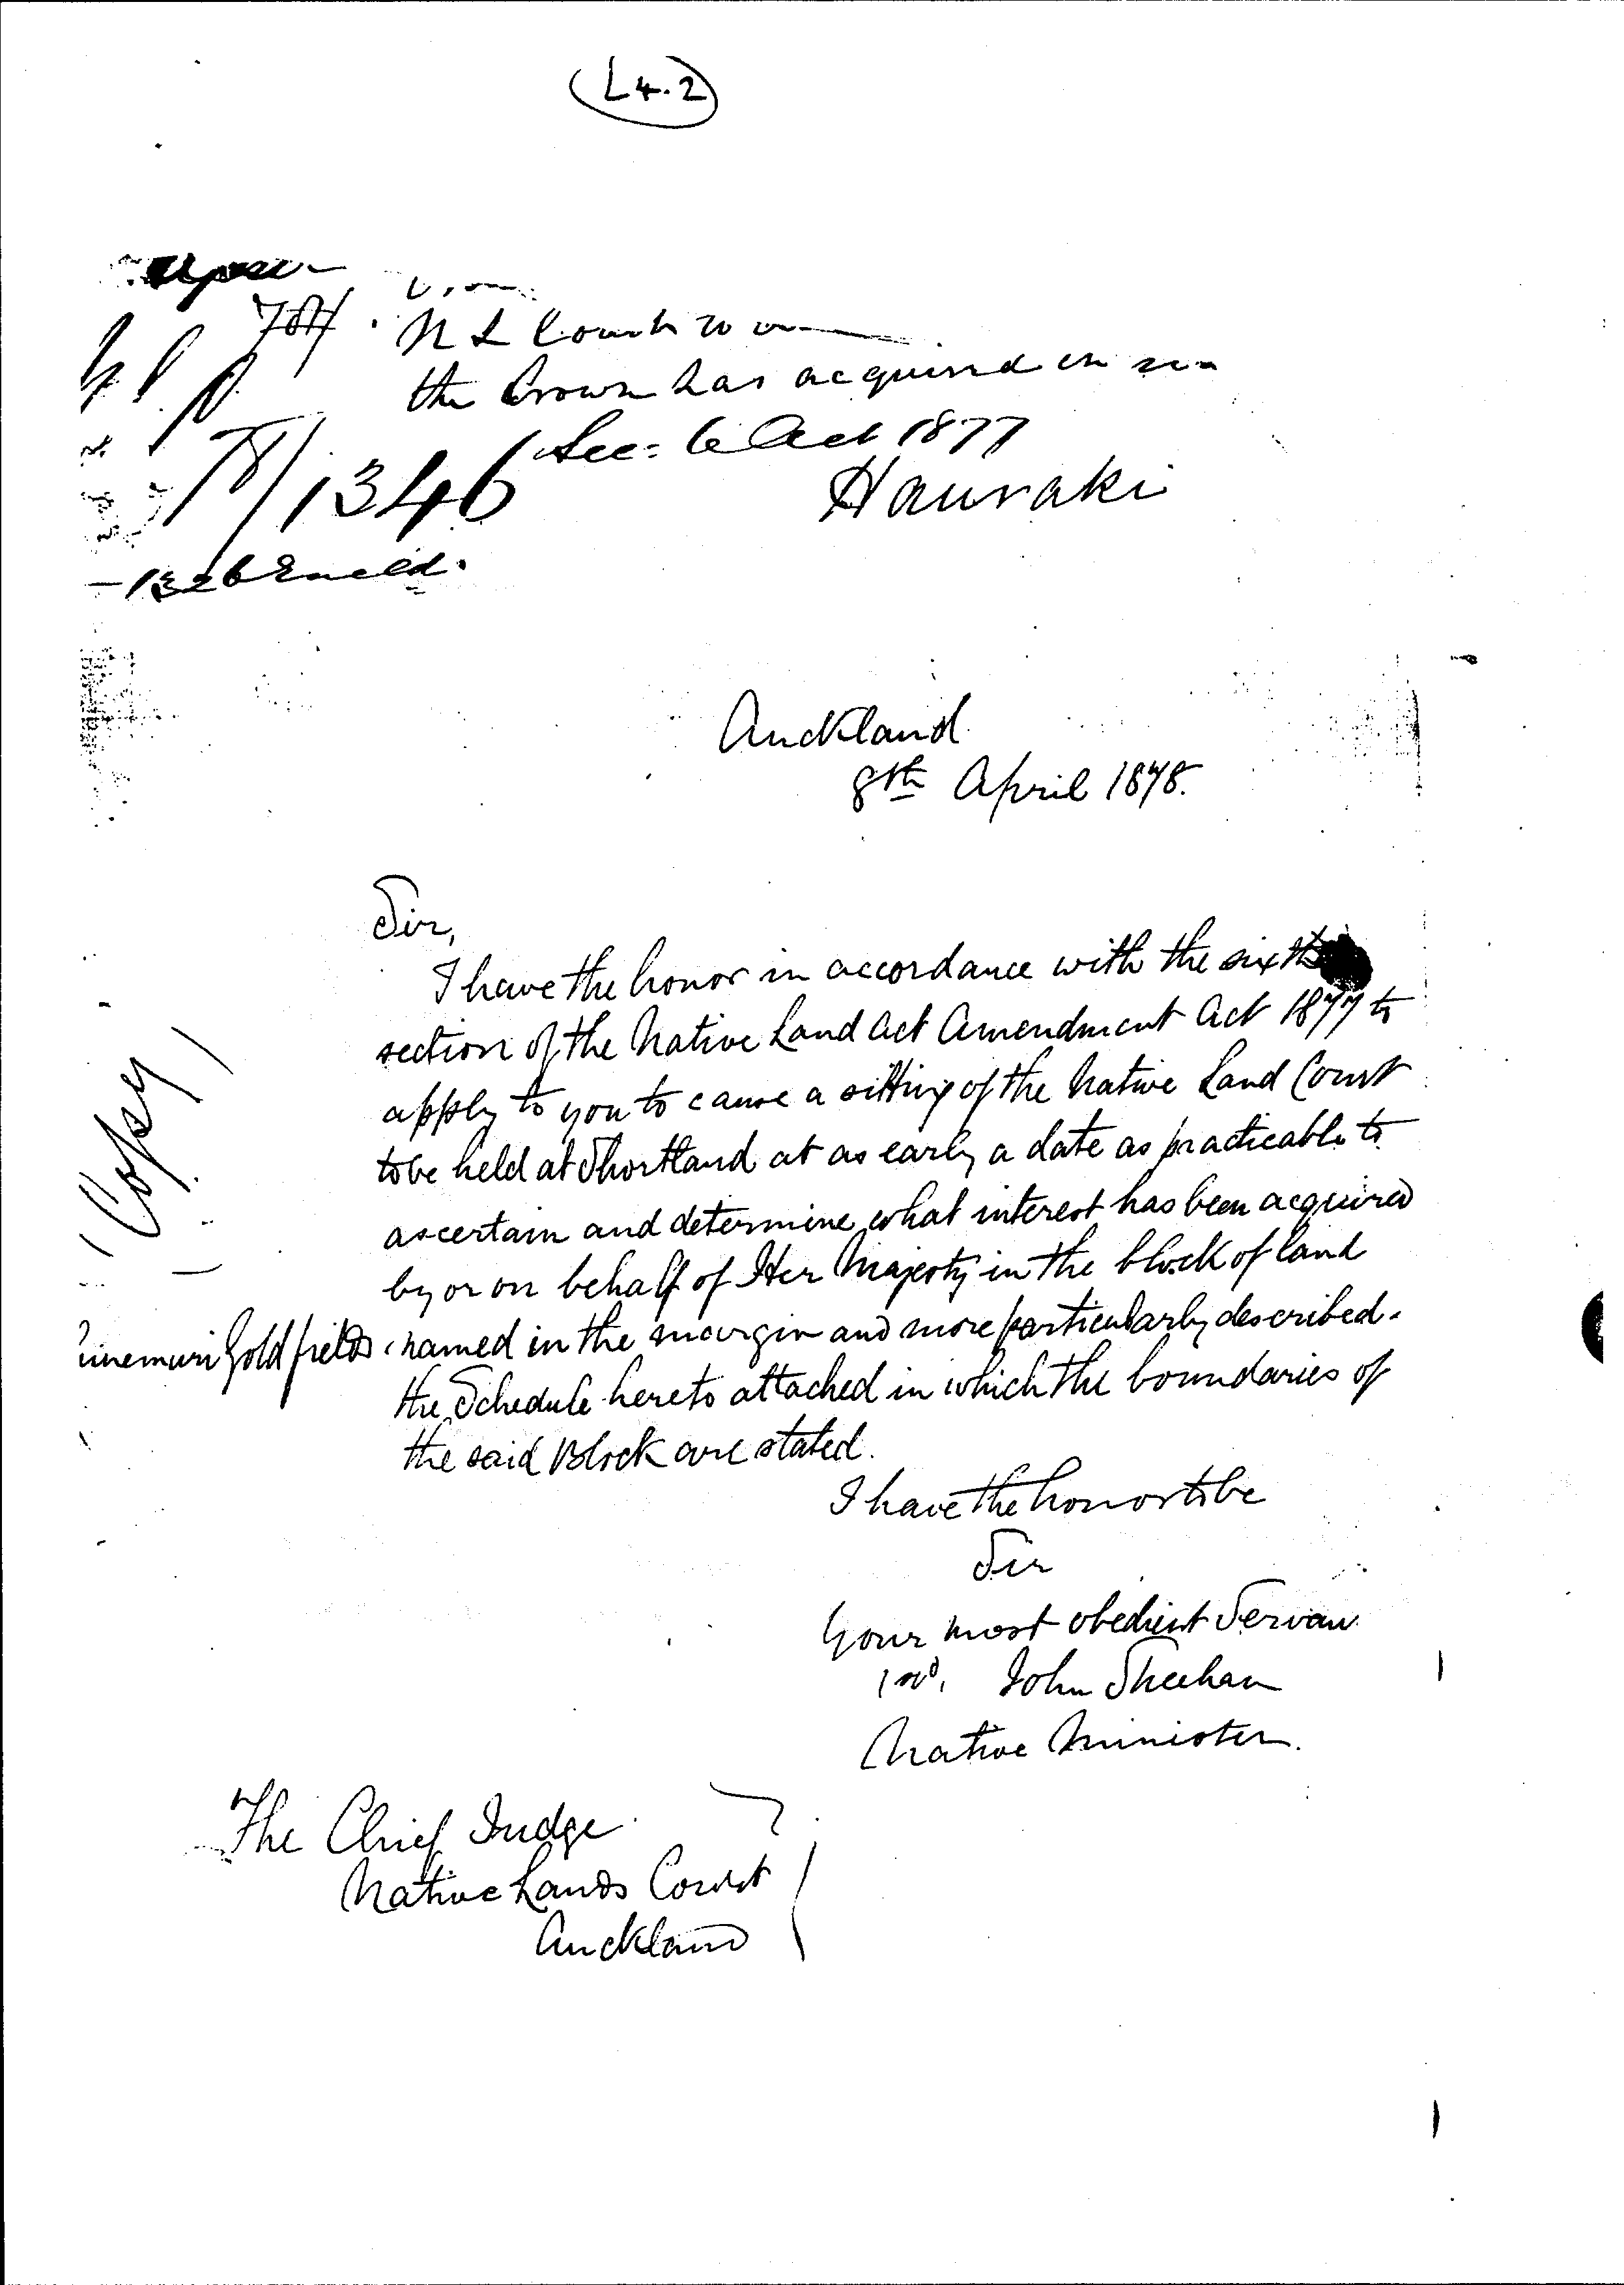 (L4.2)
N L Court to
the Crown has acquired in
Sec: 6 Act 1877
78/1346
Hauraki
Auckland
8th April 1878.
Sir,
I have the honor in accordance with the sixth
section of the Native Land Act Amendment Act 1877 to
apply to you to cause a sitting of the Native Land Court
to be held at Shortland at as early a date as practicable to
ascertain and determine what interest has been acquired
(Copy)
by or on behalf of Her Majesty in the block of land
inemuri Goldfields named in the margin and more particularly described
the Schedule hereto attached in which the boundaries of
the said Block are stated.
I have the honor to be
Sir
Your most obedient Servan
John Sheehan
Native Minister.
The Chief Judge
Native Lands Court
Auckland